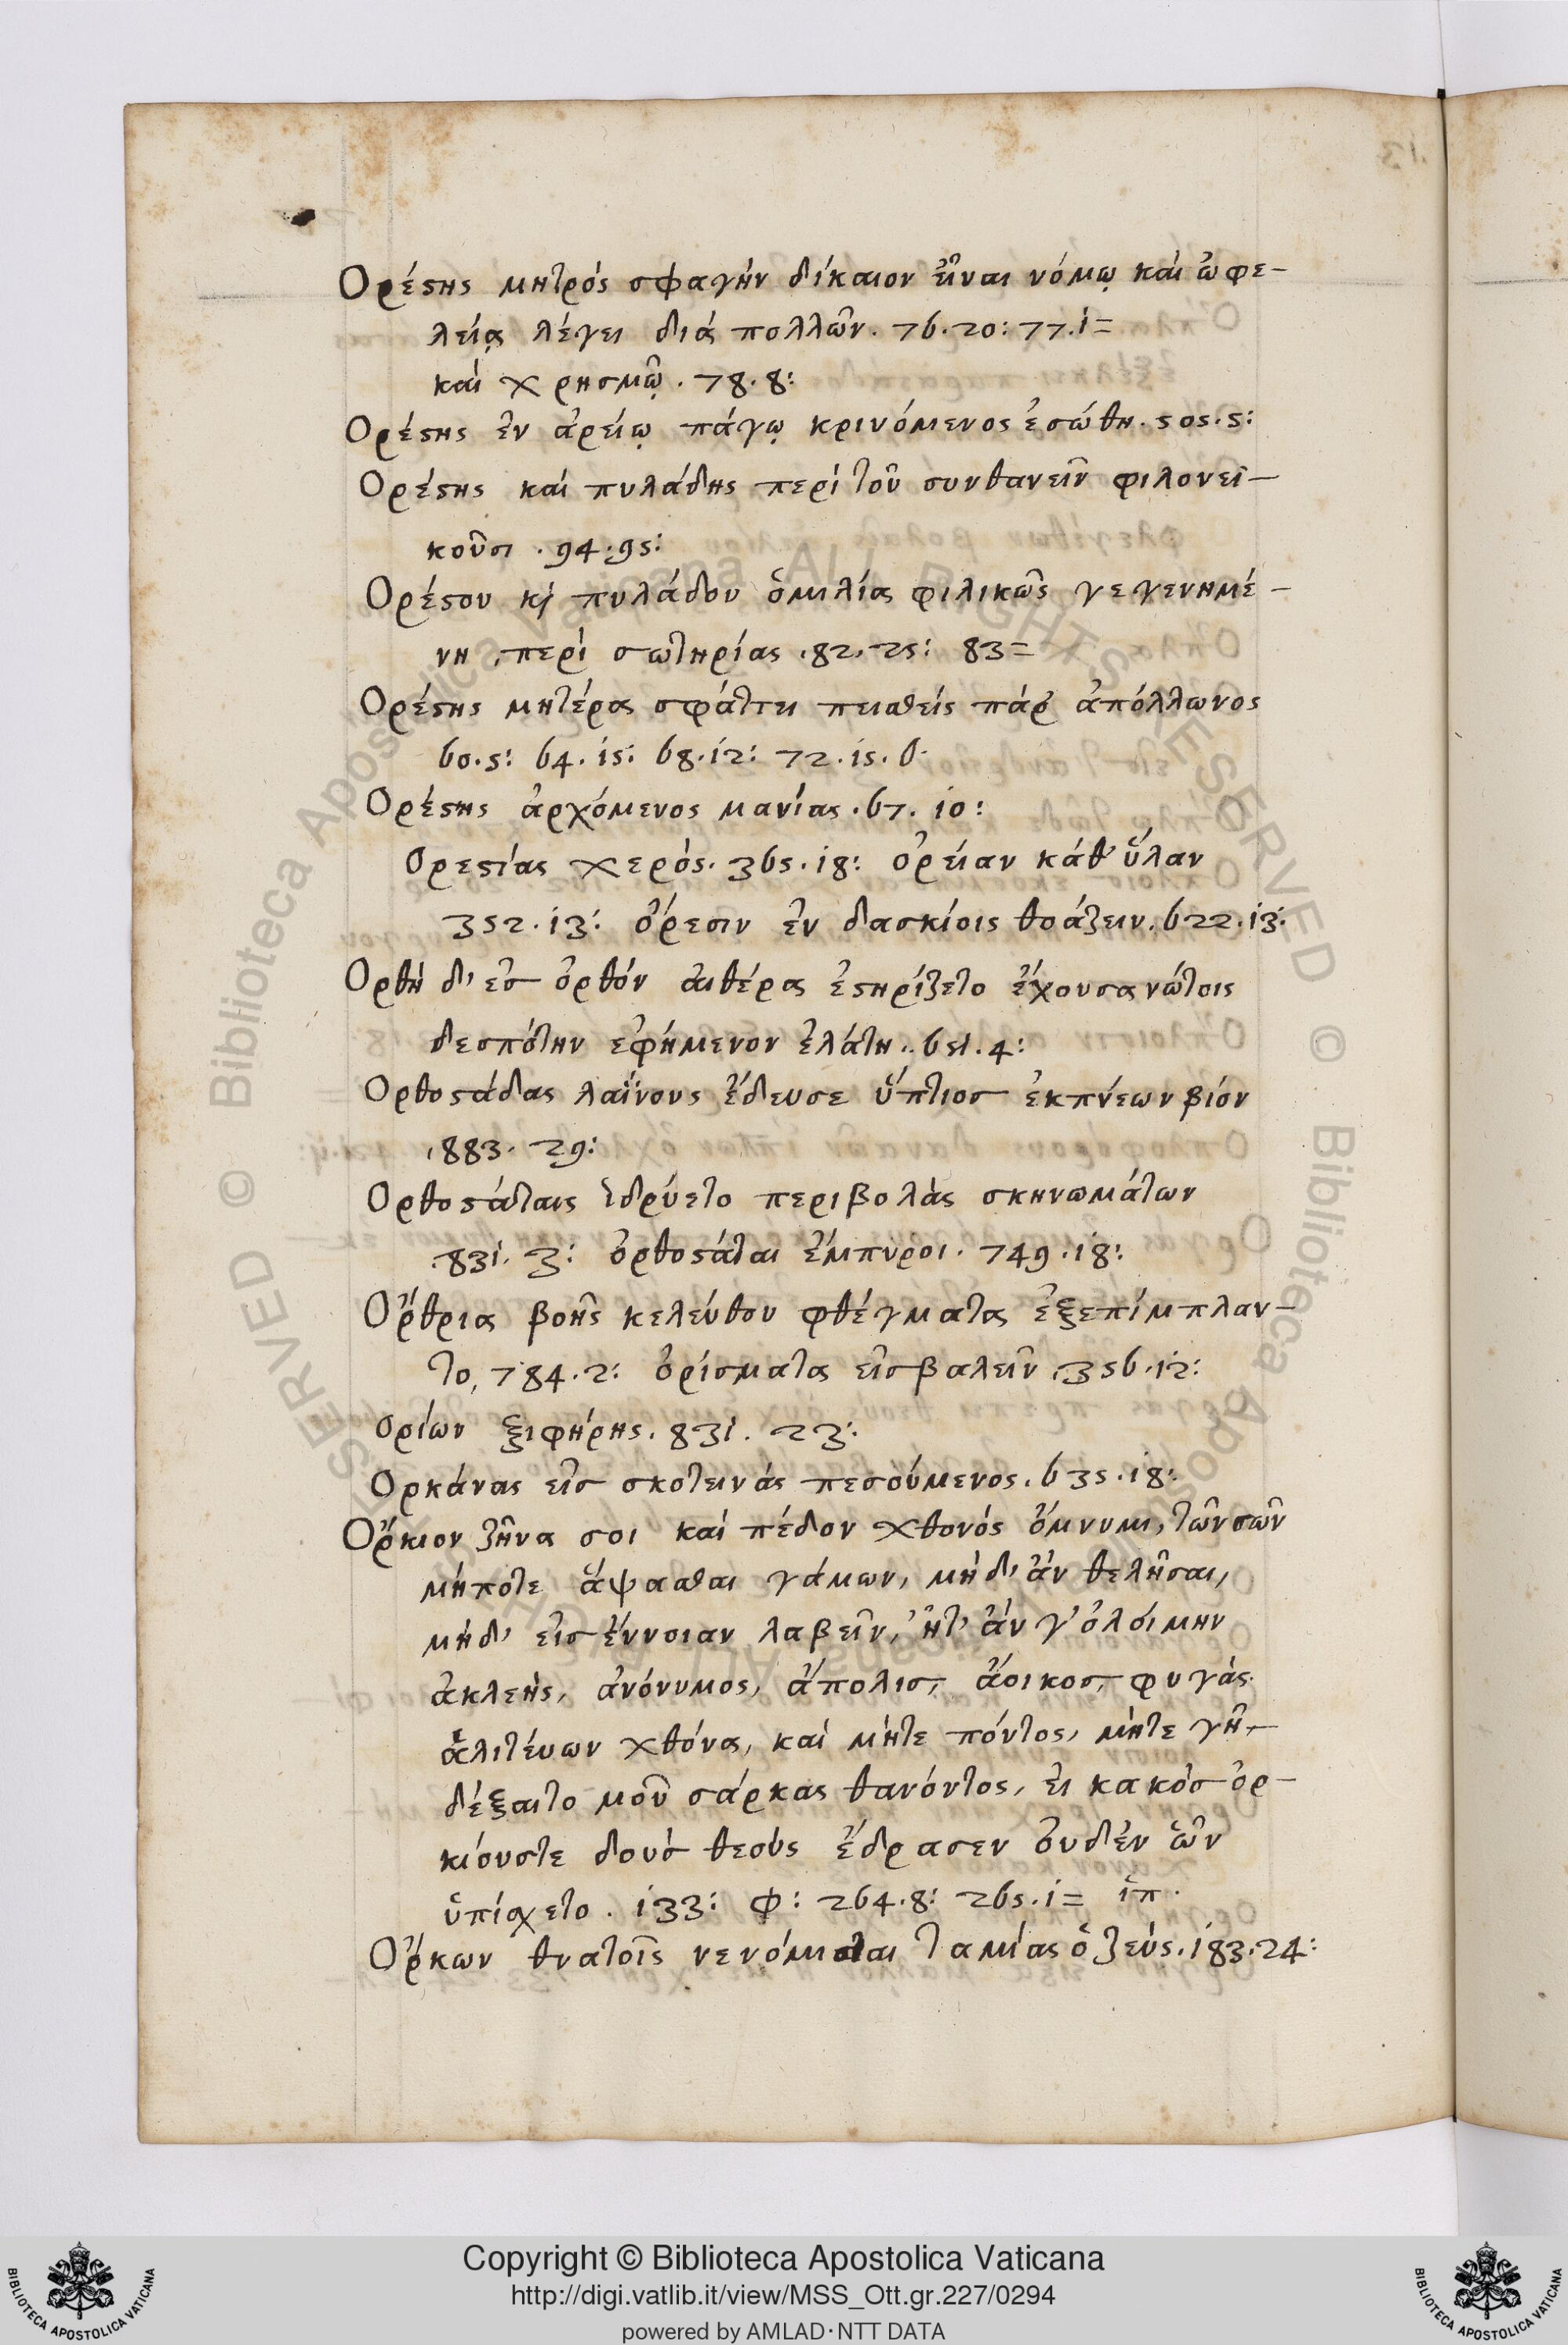 Ορέϛης μητρός σφαγήν δίκαιον εἶναι νόμῳ καί ὠφε-
λείᾳ λέγει διά πολλῶν. 76. 20: 77. 1=
καί χρησμῷ. 78. 8:
Ορέϛης ἐν ἀρείῳ πάγῳ κρινόμενος ἐσώθη. 505. 5:
Ορέϛης καί πυλάδης περί τοῦ συνθανεῖν φιλονει-
κοῦσι. 94. 95:
Ορέϛου κỳ πυλάδου ὁμιλία φιλικῶς γεγενημέ-
νη, περί σωτηρίας. 82. 25: 83=
Ορέϛης μητέρα σφάττει πεισθείς πάρ ἀπόλλωνος
60. 5: 64. 15: 68. 12: 72. 15. δ.
Ορέϛης ἀρχόμενος μανίας. 67. 10:
Ορεϛίας χερός. 365. 18: ὀρείαν κάθ' ὕλαν
352. 13: ὄρεσιν ἐν δασκίοις θοάζειν. 622. 13:
Ορθή δ' ἐσ ὀρθόν αἰθέρα ἐϛηρίζετο ἔχουσα νώτοις
δεσπότην ἐφήμενον ἐλάτη. 651. 4:
Ορθοϛάδας λαΐνους ἔδευσε ὕπτιοσ ἐκπνέων βίον
883. 29:
Ορθοϛάταις ἱδρύετο περιβολάς σκηνωμάτων
831. 3: ὀρθοϛάται ἔμπυροι. 749. 18:
Οῤθρια βοῆς κελεύθου φθέγματα ἐξεπίμπλαν-
το, 784. 2: ὀρίσματα εἰσβαλεῖν 356. 12:
Ορίων ξιφήρης. 831. 23:
Ορκάνας εἰσ σκοτεινάς πεσούμενος. 635. 18:
Ὅρκιον ζῆνα σοι καί πέδον χθονός ὄμνυμι, τῶν σῶν
μήποτε ἅψασθαι γάμων, μήδ' ἄν θελῆσαι,
μήδ' εἰσ ἔννοιαν λαβεῖν, ἤτ' ἄν γ' ὀλοίμην
ἀκλεής, ἀνόνυμος, ἄπολισ, ἄοικοσ, φυγάς
ἀλιτέυων χθόνα, καί μήτε πόντος, μήτε γῆ,
δέξαιτο μοῦ σάρκας θανόντος, εἰ κακόσ ὀρ-
κίουστε δούσ θεούς ἔδρασεν ὀυδέν ὧν
ὑπίσχετο. 133: φ: 264. 8: 265. 1= ἱπ.
Ὅρκων θνατοῖς νενόμισται ταμίας ὁ ζεύς. 183. 24:
Copyright © Biblioteca Apostolica Vaticana
http://digi.vatlib.it/view/MSS_Ott.gr.227/0294
powered by AMLAD·NTT DATA